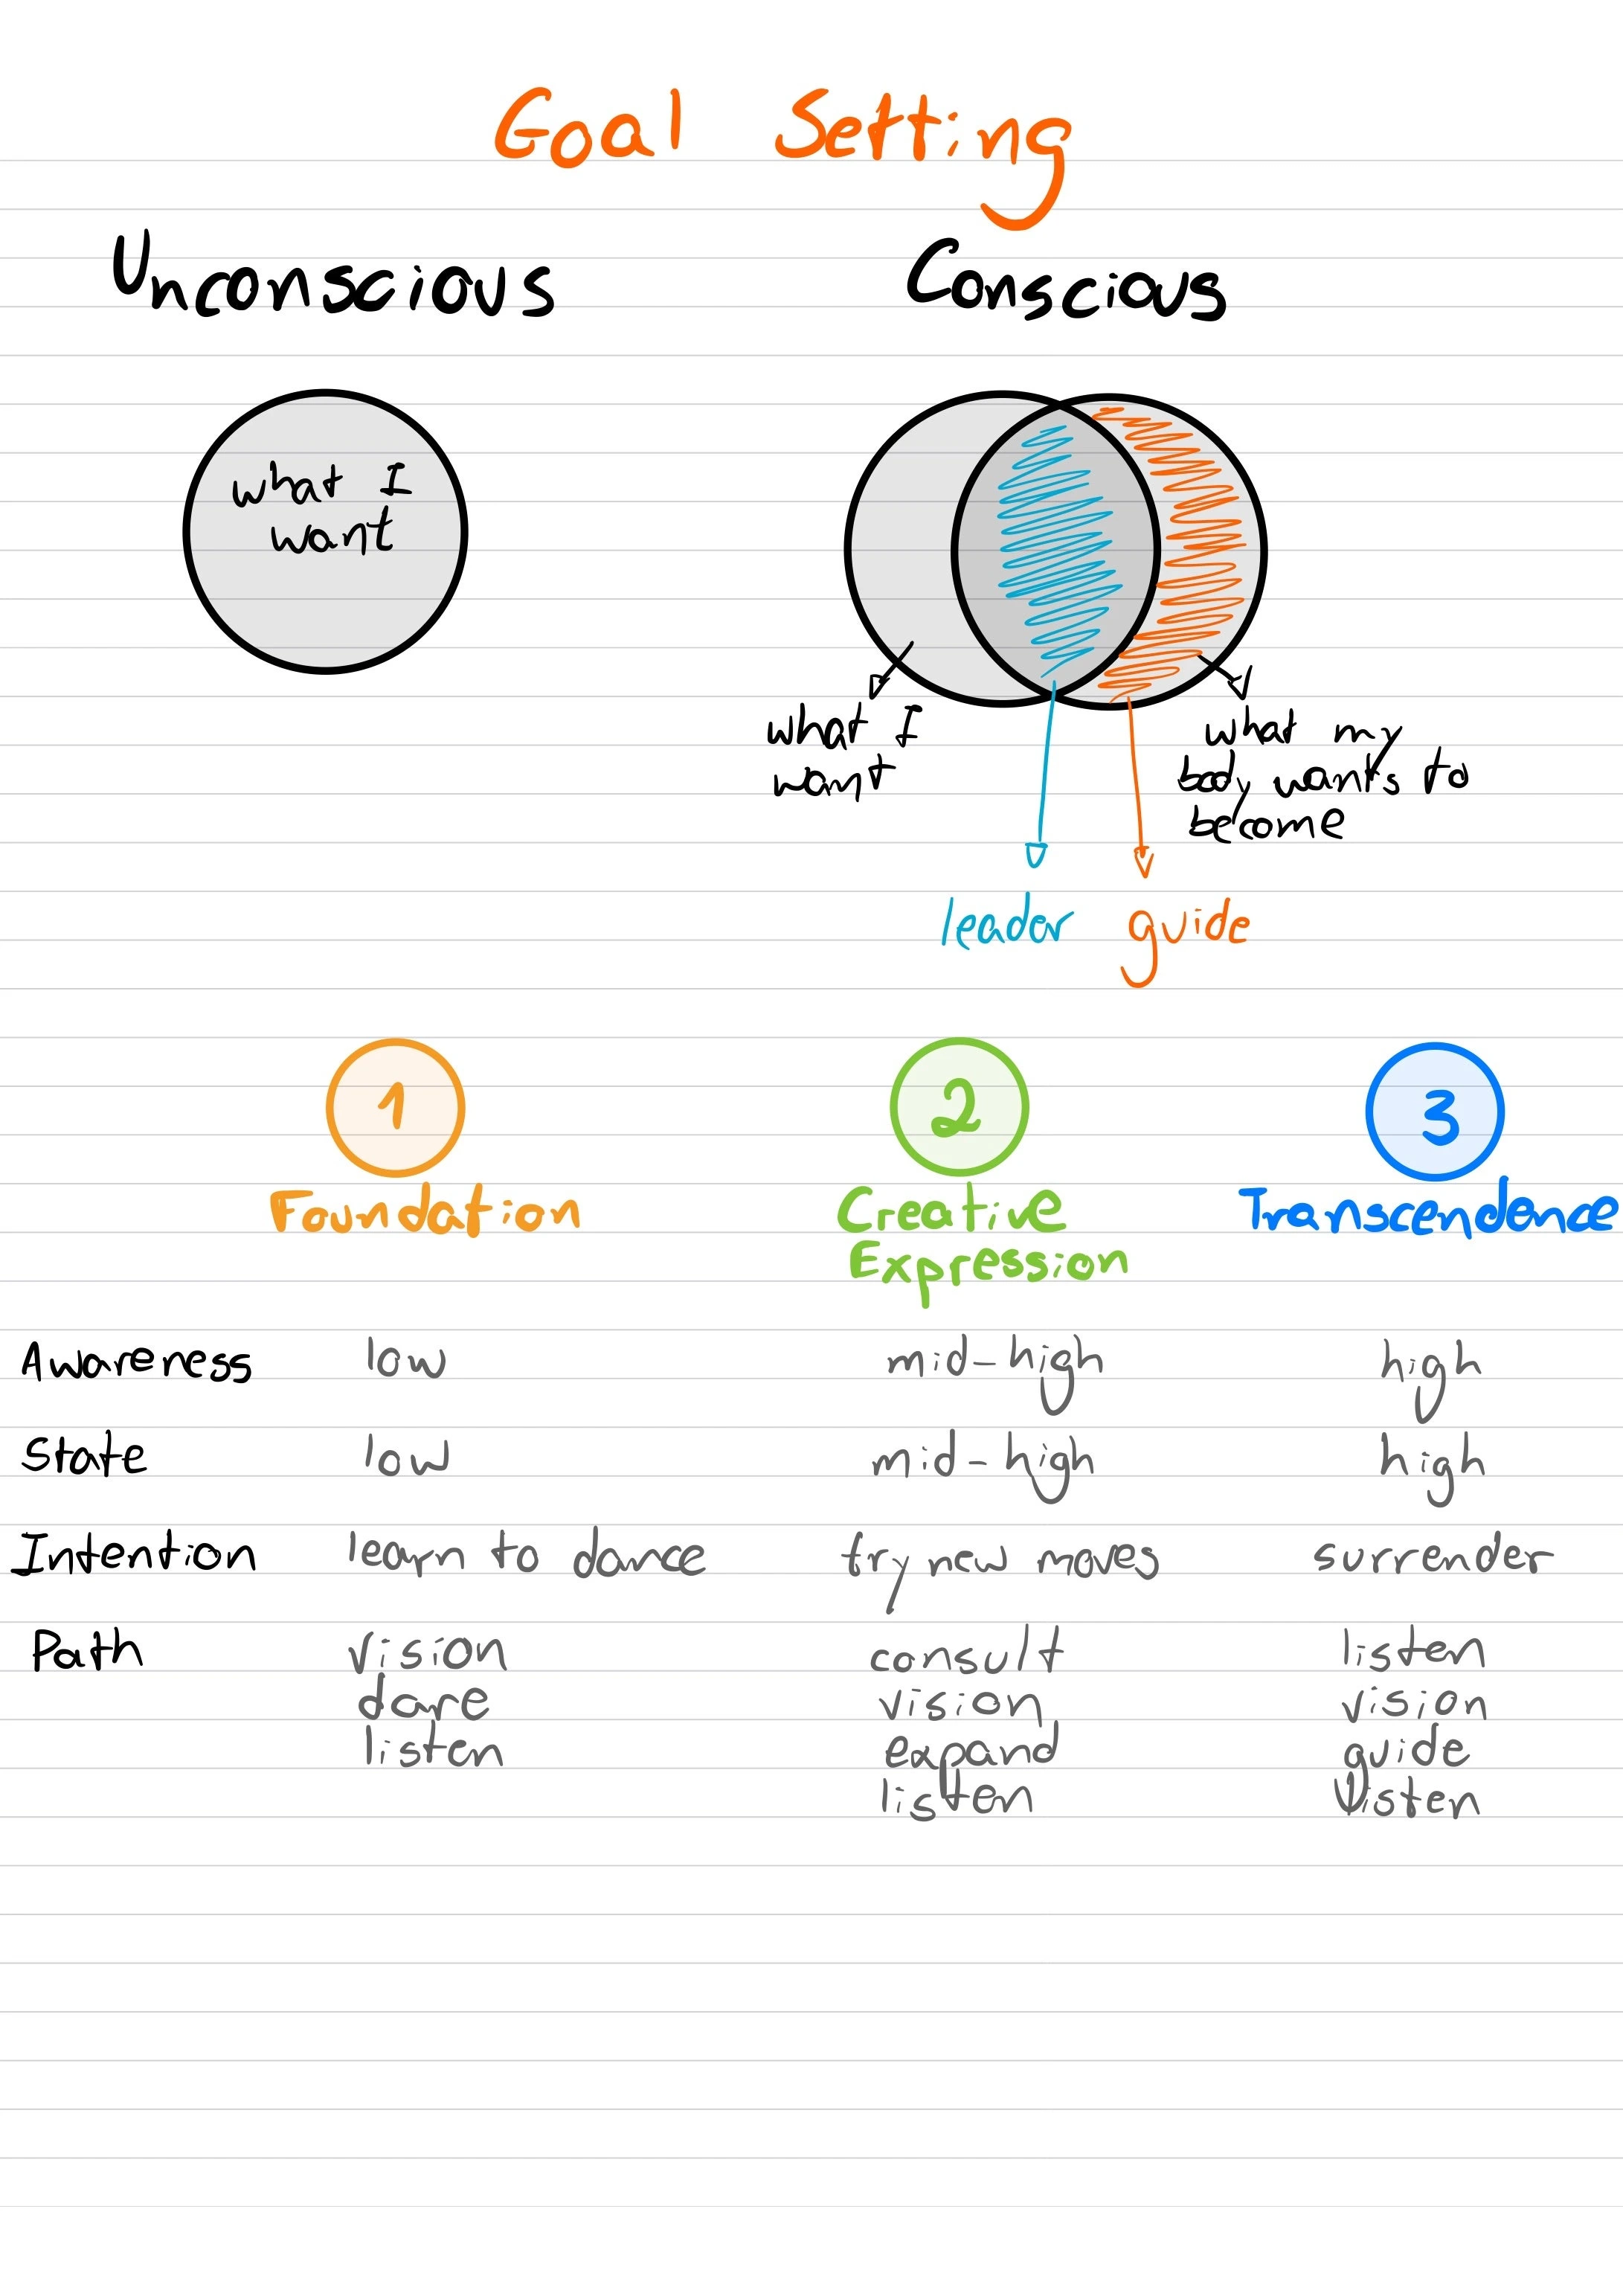 Goal Setting
Unconscious Conscious
what I
want
what I
want
what my
body wants to
become
leader guide
1 2 3
Foundation Creative Transcendence
Expression
Awareness low mid-high high
State low mid-high high
Intention learn to dance try new moves surrender
Path vision consult listen
dare vision vision
listen expand guide
listen listen